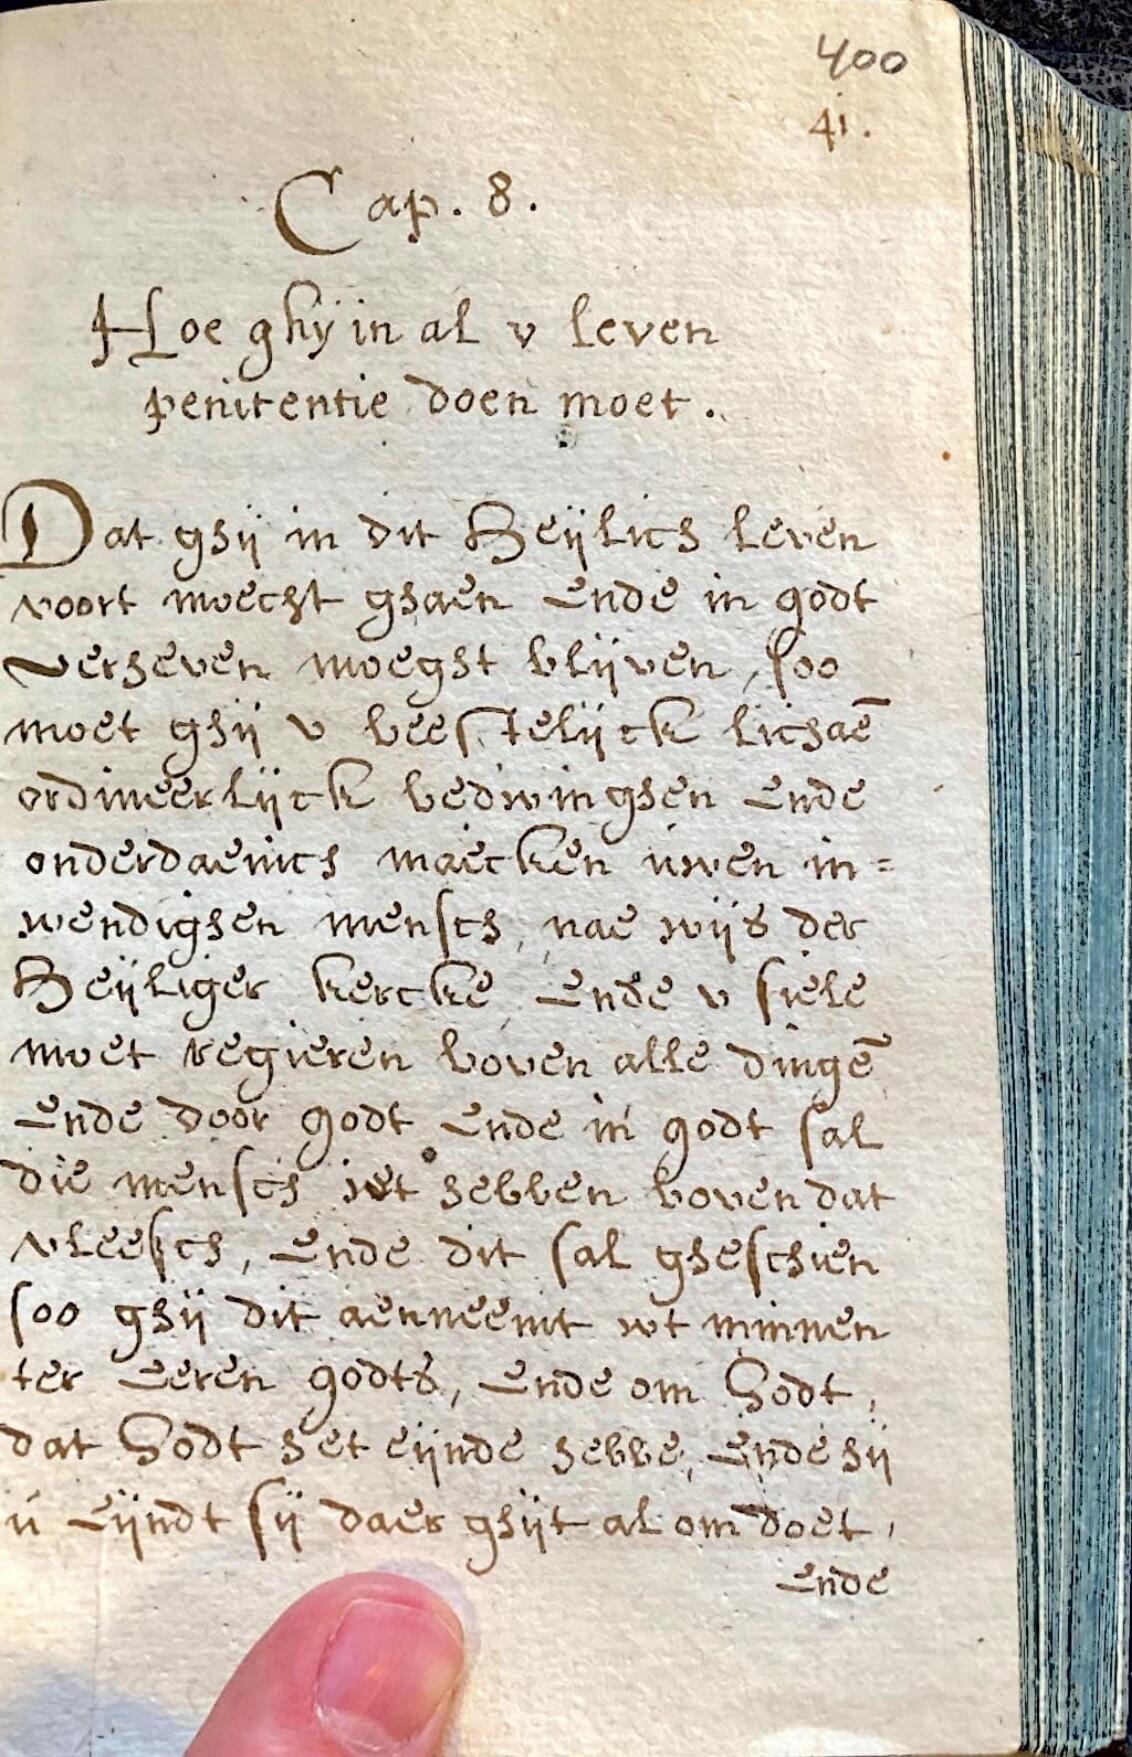 400
41.
Cap. 8.
Hoe ghÿ in al v leven
penitentie doen moet.
Dat ghij in dit Heÿlich leven
voort moecht ghaen ende in godt
verheven moeght blijven, soo
moet ghij v beestelijck lichaē
ordineerlijck bedwinghen ende
onderdaenich maecken uwen in=
wendighen mensch, nae wijs der
Heÿliger kercke, ende v siele
moet regieren boven alle dingē
ende door godt ende in godt sal
die mensch iet hebben boven dat
vleesch, ende dit sal gheschien
soo ghij dit aenneemt wt minnen
ter eeren godts, ende om Godt,
dat Godt het eijnde hebbe, ende hij
ú eijndt sij daer ghijt al om doet,
ende